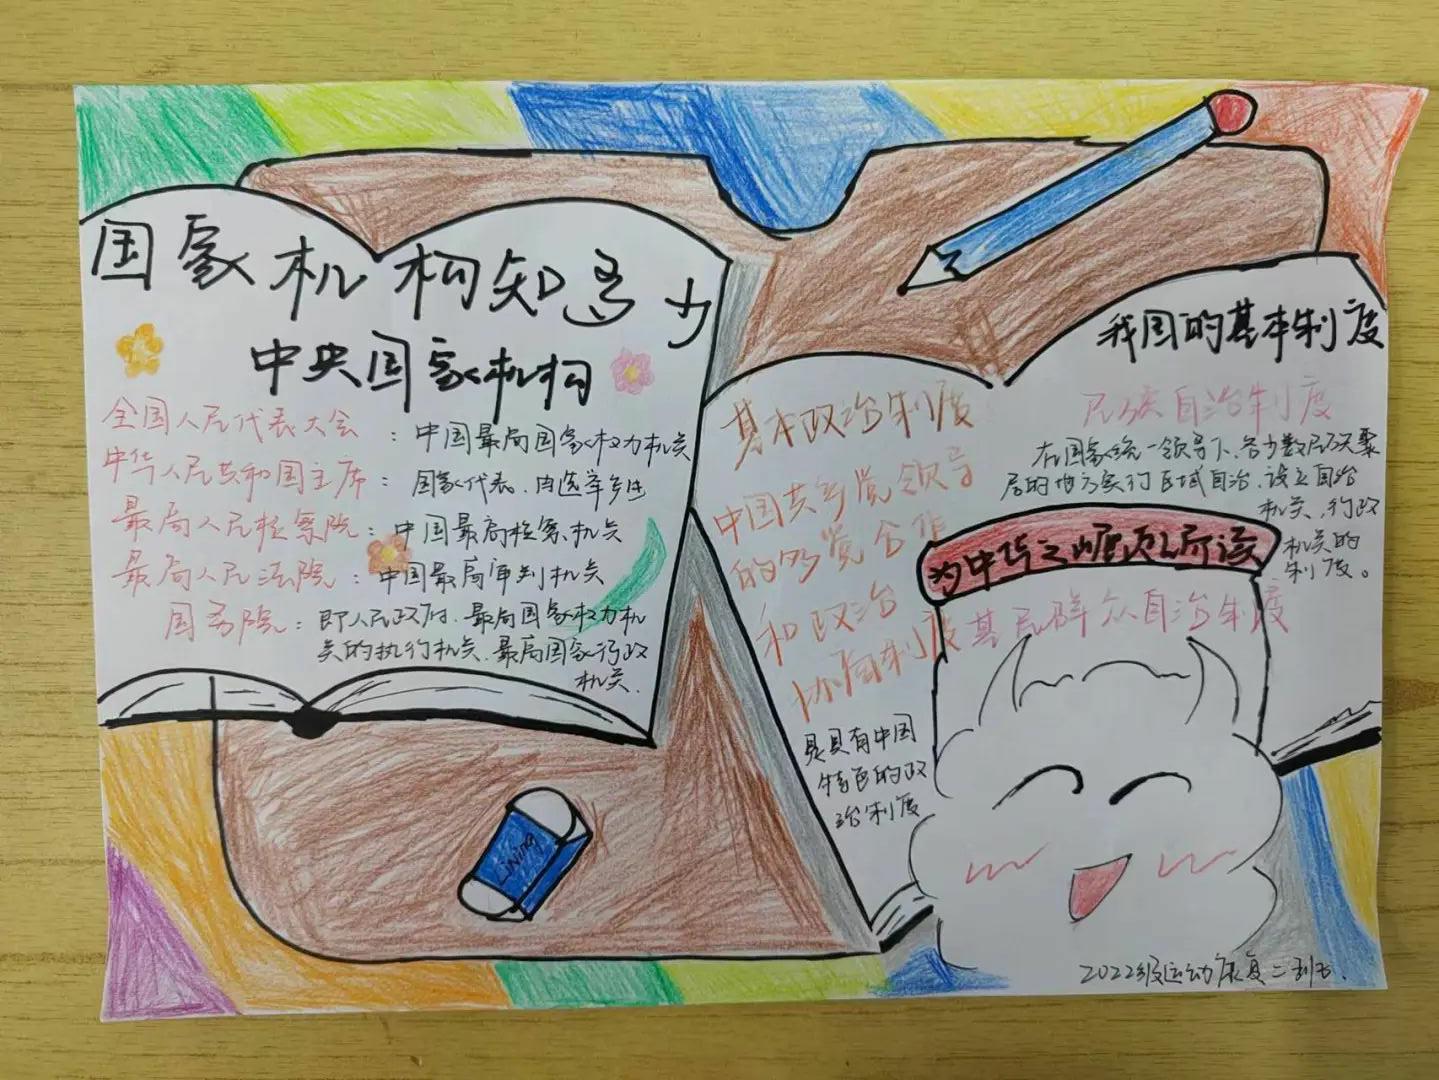 国家机构知多少
中央国家机构
全国人民代表大会：中国最高国家权力机关
中华人民共和国主席：国家代表、由选举产生
最高人民检察院：中国最高检察机关
最高人民法院：中国最高审判机关
国务院：即人民政府、最高国家权力机
关的执行机关、最高国家行政
机关.
Lining
我国的基本制度
基本政治制度
中国共产党领导
的多党合作
和政治
协商制度
是具有中国
特色的政
治制度
民族自治制度
在国家统一领导下、各少数民族聚
居的地方实行区域自治、设立自治
机关、行政
机关的
制度。
基民群众自治制度
为中华之崛起而读
2022级运动康复二